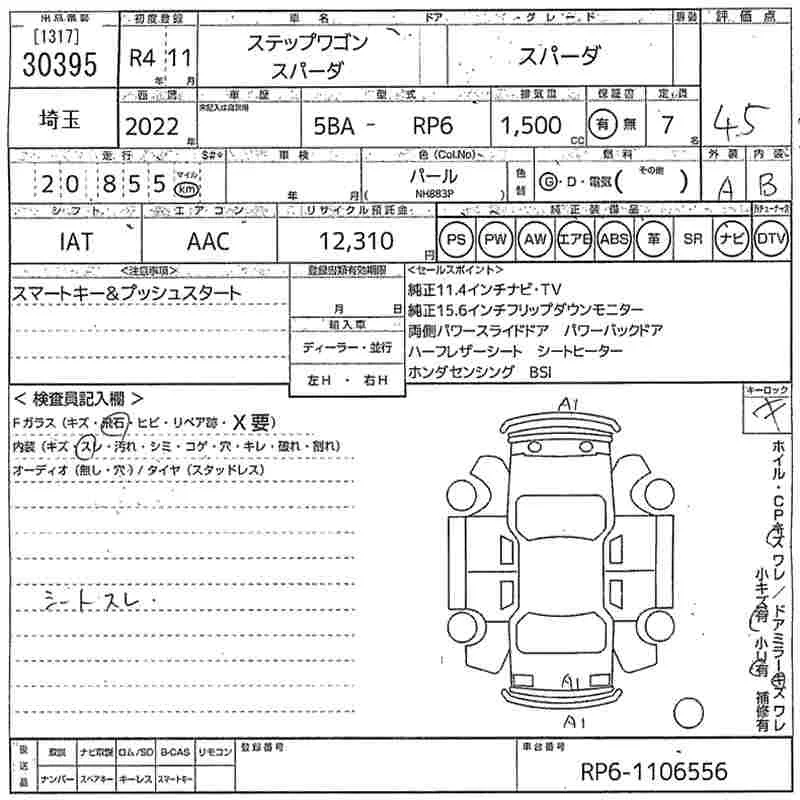 出品番号 初度登録 車名 ドア グレード 車歴 評価点
[1317]
30395 R4年 11月 ステップワゴン スパーダ
スパーダ
埼玉 西暦 車歴 型式 排気量 保証書 定員 4.5
未記入は自家用
2022年 5BA - RP6 1,500cc 有・無 7名
走行 S#* 車検 色(Col.No) 燃料 外装 内装
20855 マイル km 年 月 パール 色替 G・D・電気( その他 ) A B
( NH883P )
シフト エアコン リサイクル預託金 純正装備品
IAT AAC 12,310円 PS PW AW エアB ABS 革 SR ナビ DTV
<注意事項> 登録書類有効期限 <セールスポイント>
スマートキー&プッシュスタート 月 日
純正11.4インチナビ・TV
純正15.6インチフリップダウンモニター
輸入車 両側パワースライドドア パワーバックドア
ディーラー・並行 ハーフレザーシート シートヒーター
左H・右H ホンダセンシング BSI
<検査員記入欄> キーロック
Fガラス(キズ・飛石・ヒビ・リペア跡・X要)
内装(キズ・スレ・汚れ・シミ・コゲ・穴・キレ・破れ・割れ)
オーディオ(無し・穴)/タイヤ(スタッドレス)
A1
シートスレ.
A1
A1
ホイル・CPキズ ワレ/ドアミラーキズ ワレ
小キズ有 小U有 補修有
後送品 取説 ナビ取説 ロム/SD B-CAS リモコン 登録番号 車台番号
ナンバー スペアキー キーレス スマートキー RP6-1106556